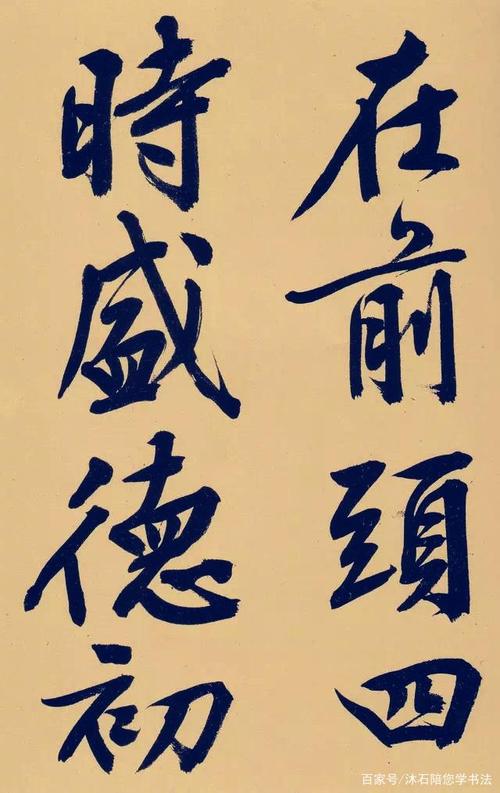 在前頭四
時盛德初
百家号/沐石陪您学书法